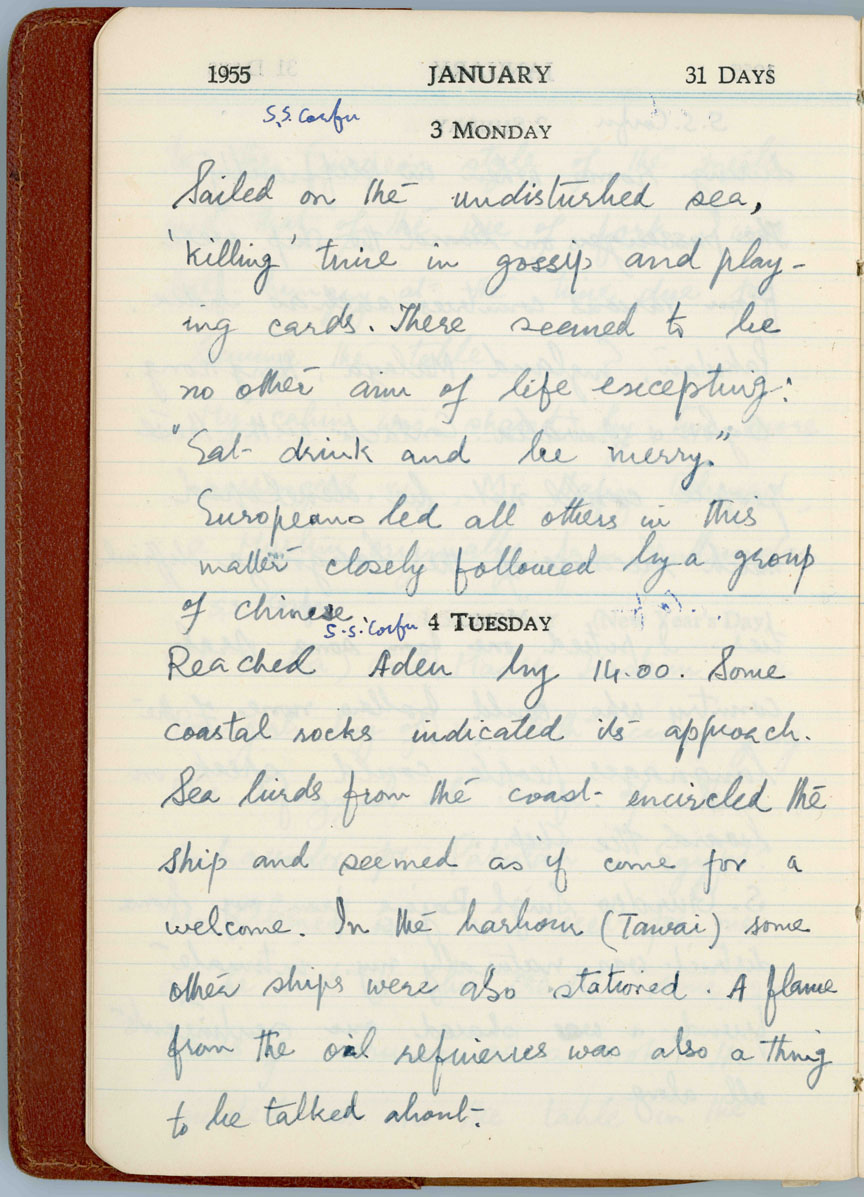 1955 JANUARY 31 DAYS
S.S. Corfu
3 MONDAY
Sailed on the undisturbed sea,
'killing' time in gossip and play-
ing cards. There seemed to be
no other aim of life excepting:
"Eat drink and be merry."
Europeans led all others in this
matter closely followed by a group
of chinese.
S.S. Corfu
4 TUESDAY
Reached Aden by 14.00. Some
coastal rocks indicated its approach.
Sea birds from the coast encircled the
ship and seemed as if come for a
welcome. In the harbour (Tawai) some
other ships were also stationed. A flame
from the oil refineries was also a thing
to be talked about.